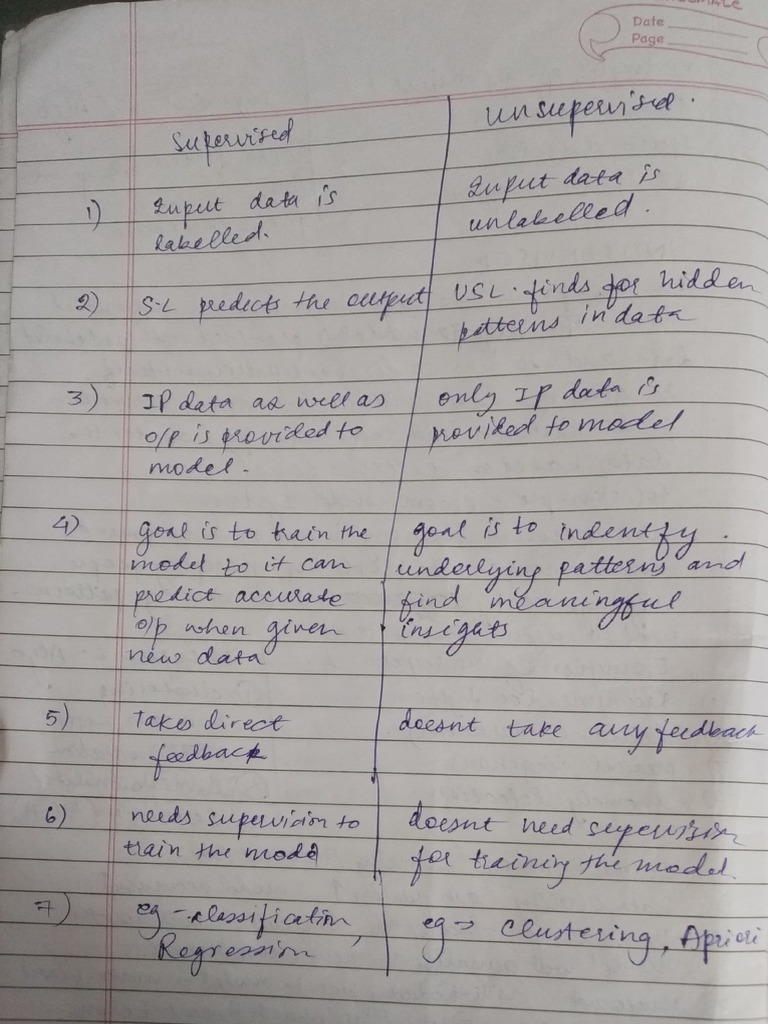 Date
Page
Supervised
unsupervised.
1) Input data is
labelled.
Input data is
unlabelled.
2) S-L predicts the output
USL. finds for hidden
patterns in data
3) IP data as well as
o/p is provided to
model.
only IP data is
provided to model
4) goal is to train the
model to it can
predict accurate
o/p when given
new data
goal is to indentfy.
underlying patterns and
find meaningful
insights
5) Takes direct
feedback
doesnt take any feedback
6) needs supervision to
train the model
doesnt need supervision
for training the model.
7) eg - classification,
Regression
eg → clustering, Apriori